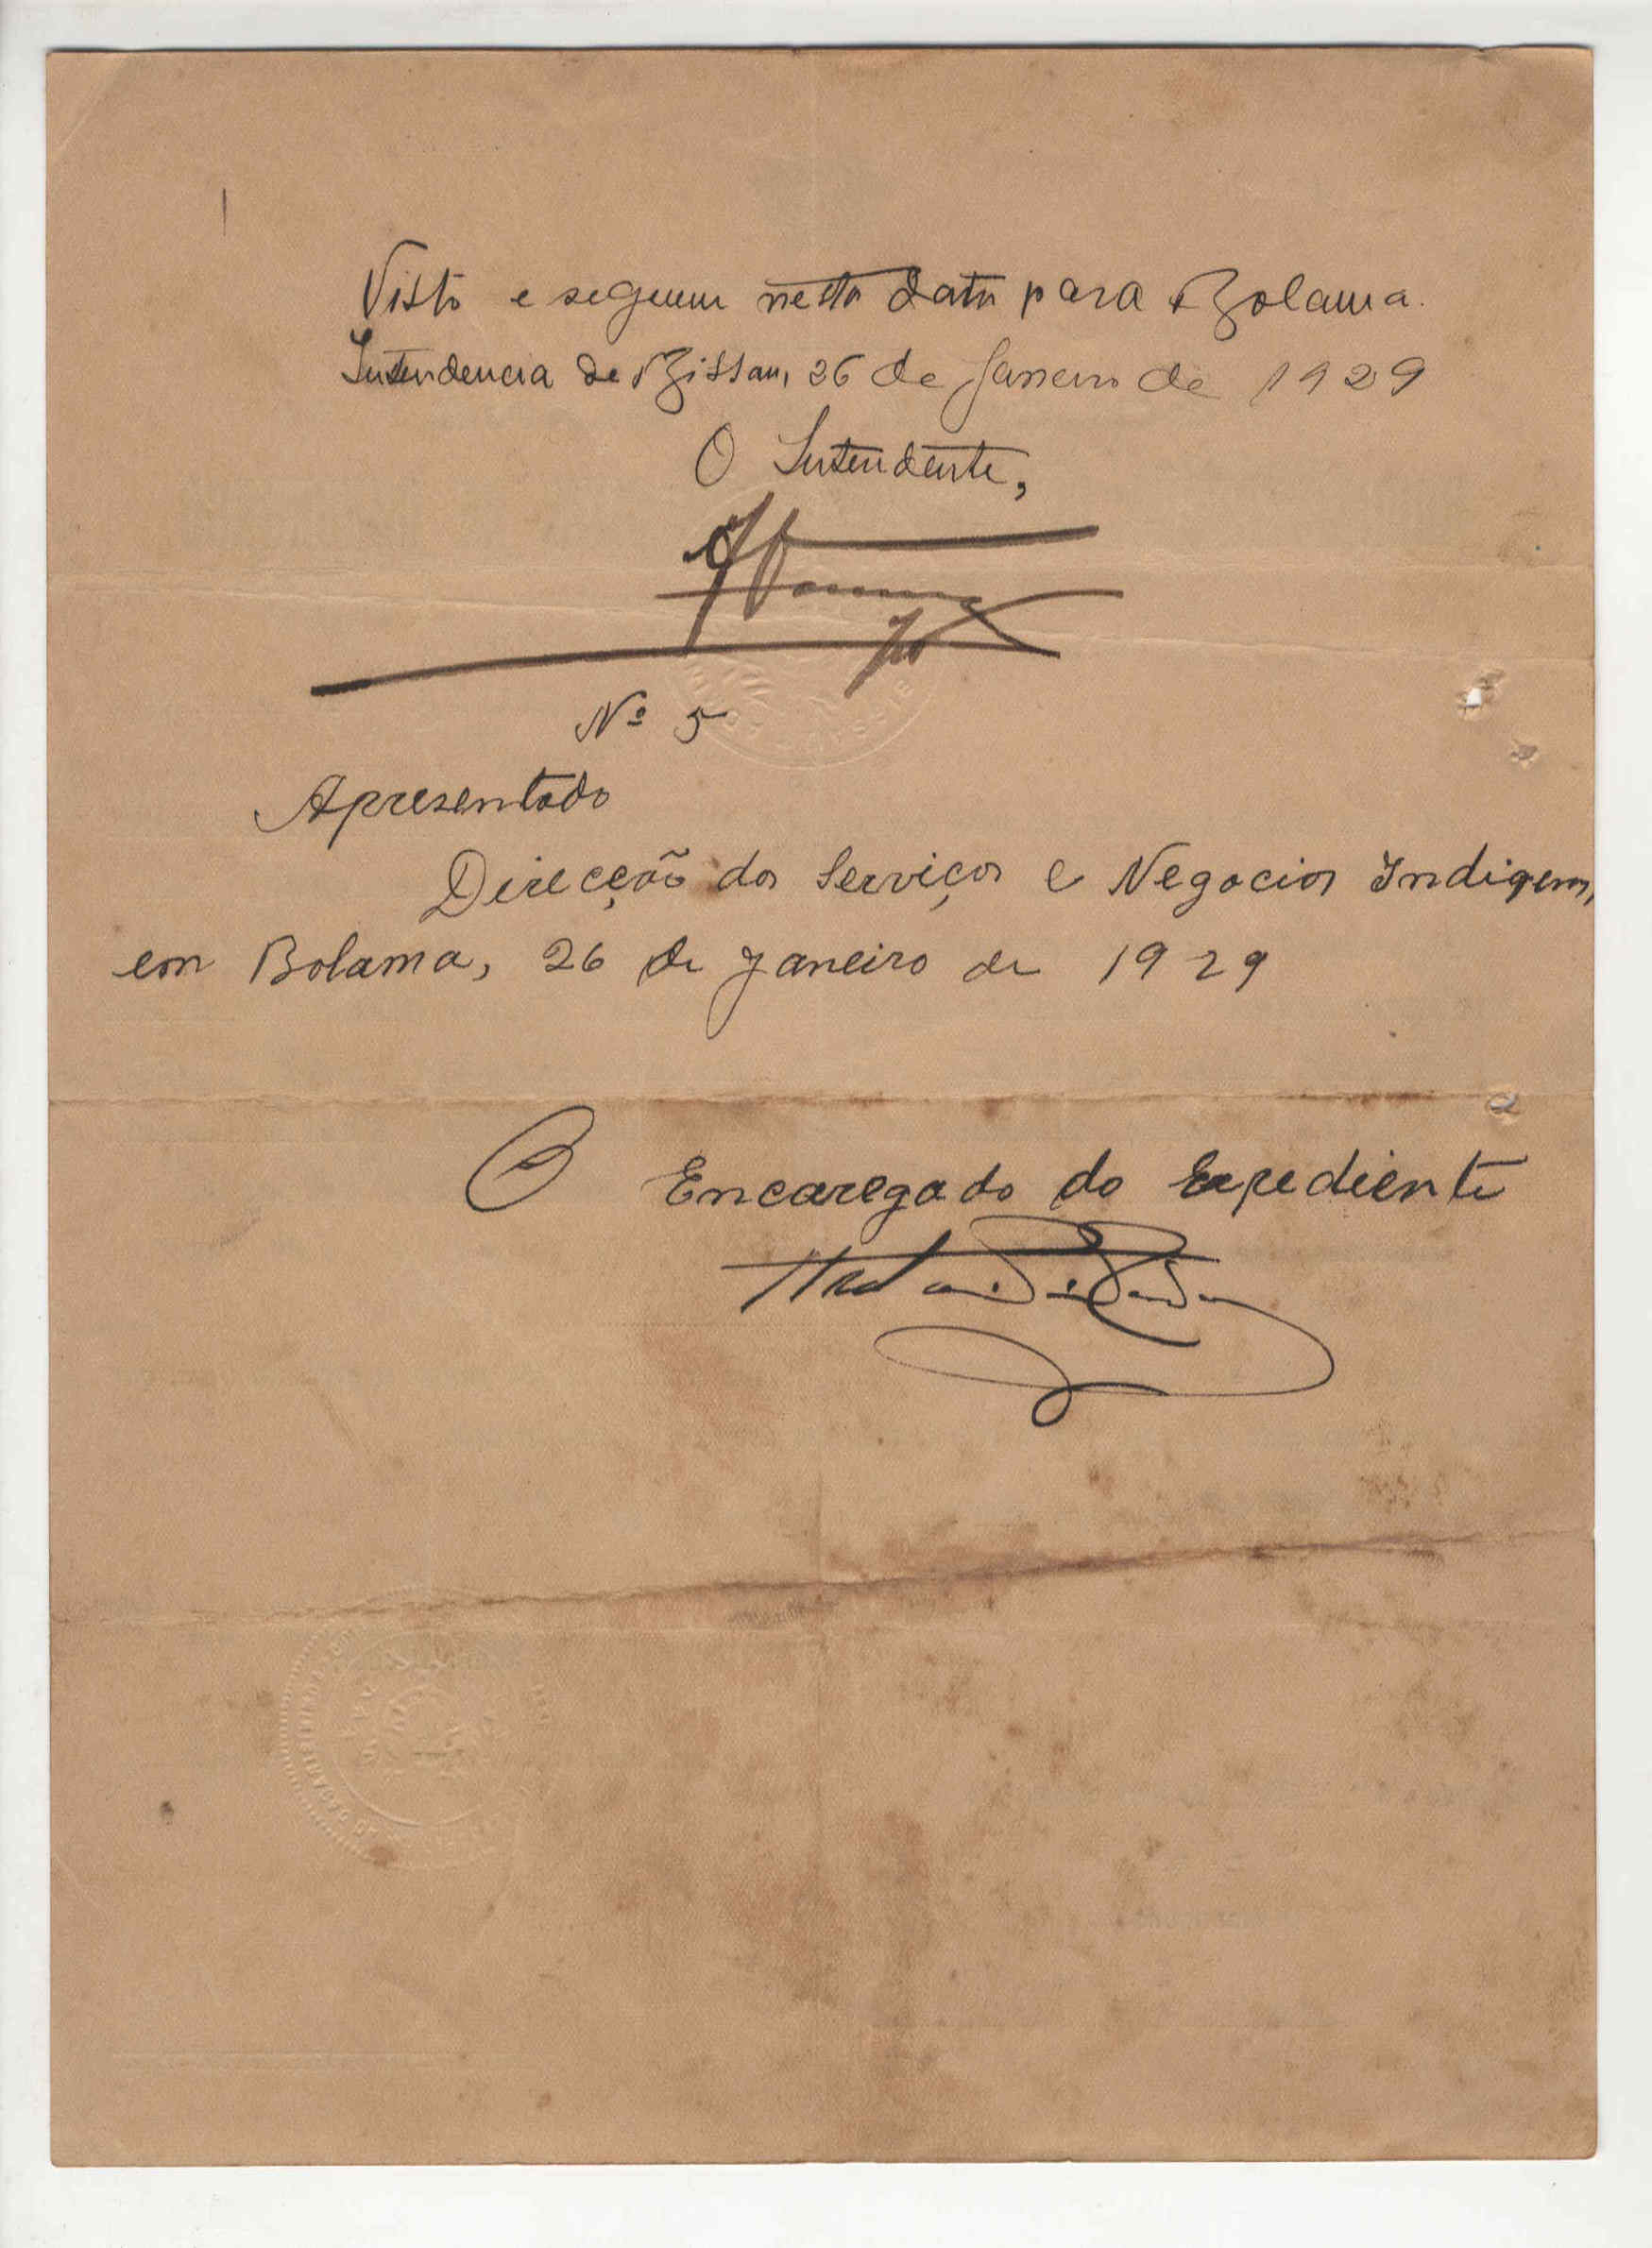 Visto e seguem nesta data para Bolama.
Intendencia de Bissau, 26 de Janeiro de 1929
O Intendente,
Nº 5
Apresentado
Direcção dos Serviços e Negocios Indigenas,
em Bolama, 26 de Janeiro de 1929
O Encaregado do Expediente